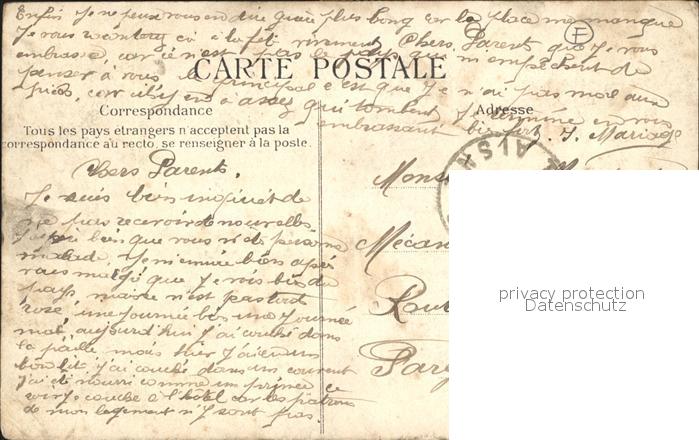 Enfin je ne peux vous en dire guère plus long car la place me manque
Je vous raconterai à la fin vivement Chers Parent que je vous
embrasse, car ce n'est pas le pays qui m'empêchent de
penser à vous le principal c'est que je n'ai pas mal aux
pieds, car il y en a assez qui tombent. Je termine en vous
embrassant bien fort. J. Mariage
F
CARTE POSTALE
Correspondance
Adresse
Tous les pays étrangers n'acceptent pas la
correspondance au recto, se renseigner à la poste.
Chers Parents,
Je suis bien inquiet de
ne pas recevoir de nouvelles
bien que vous n'êtes personne
malade, je m'ennuie bien après
vous malgré que je vois bien du
pays, mais ce n'est pas tout
rose, une journée bon une journée
mal, aujourd'hui j'ai couché dans
la paille mais hier j'ai eu un
bon lit, j'ai couché dans un couvent
j'ai été nourri comme un prince ce
soir je couche à l'hôtel car les patrons
de mon logement n'y sont pas.
AISNE
Mons
Mécan
Rue
Parg
privacy protection
Datenschutz